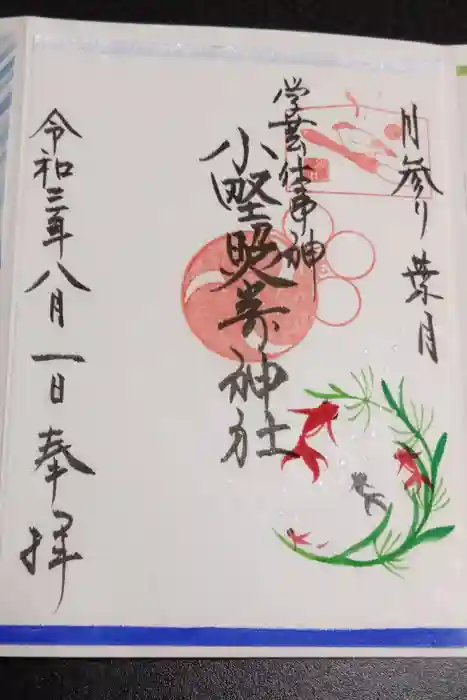 月参り 葉月
学芸仕事神
小野照崎神社
令和三年八月一日 奉拝